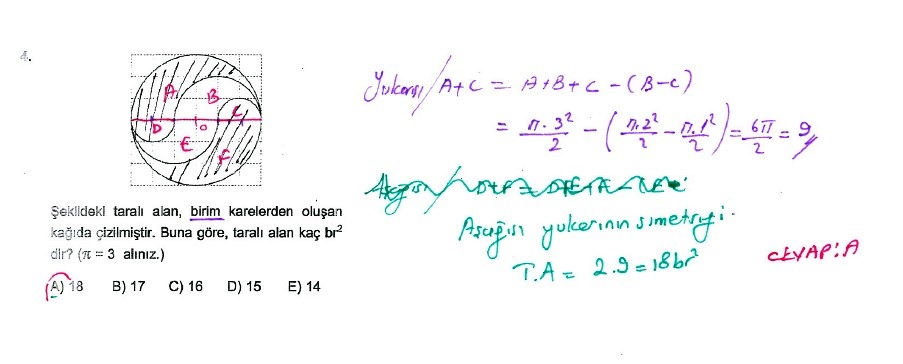 4.
A
B
C
D
O
E
F
Şekildeki taralı alan, birim karelerden oluşan
kağıda çizilmiştir. Buna göre, taralı alan kaç br²
dir? (π = 3 alınız.)
A) 18 B) 17 C) 16 D) 15 E) 14
Yukarısı/ A+C = A+B+C - (B-C)
= π.3²/2 - (π.2²/2 - π.1²/2) = 6π/2 = 9
Aşağısı yukarının simetriği.
T.A = 2.9 = 18br²
CEVAP:A